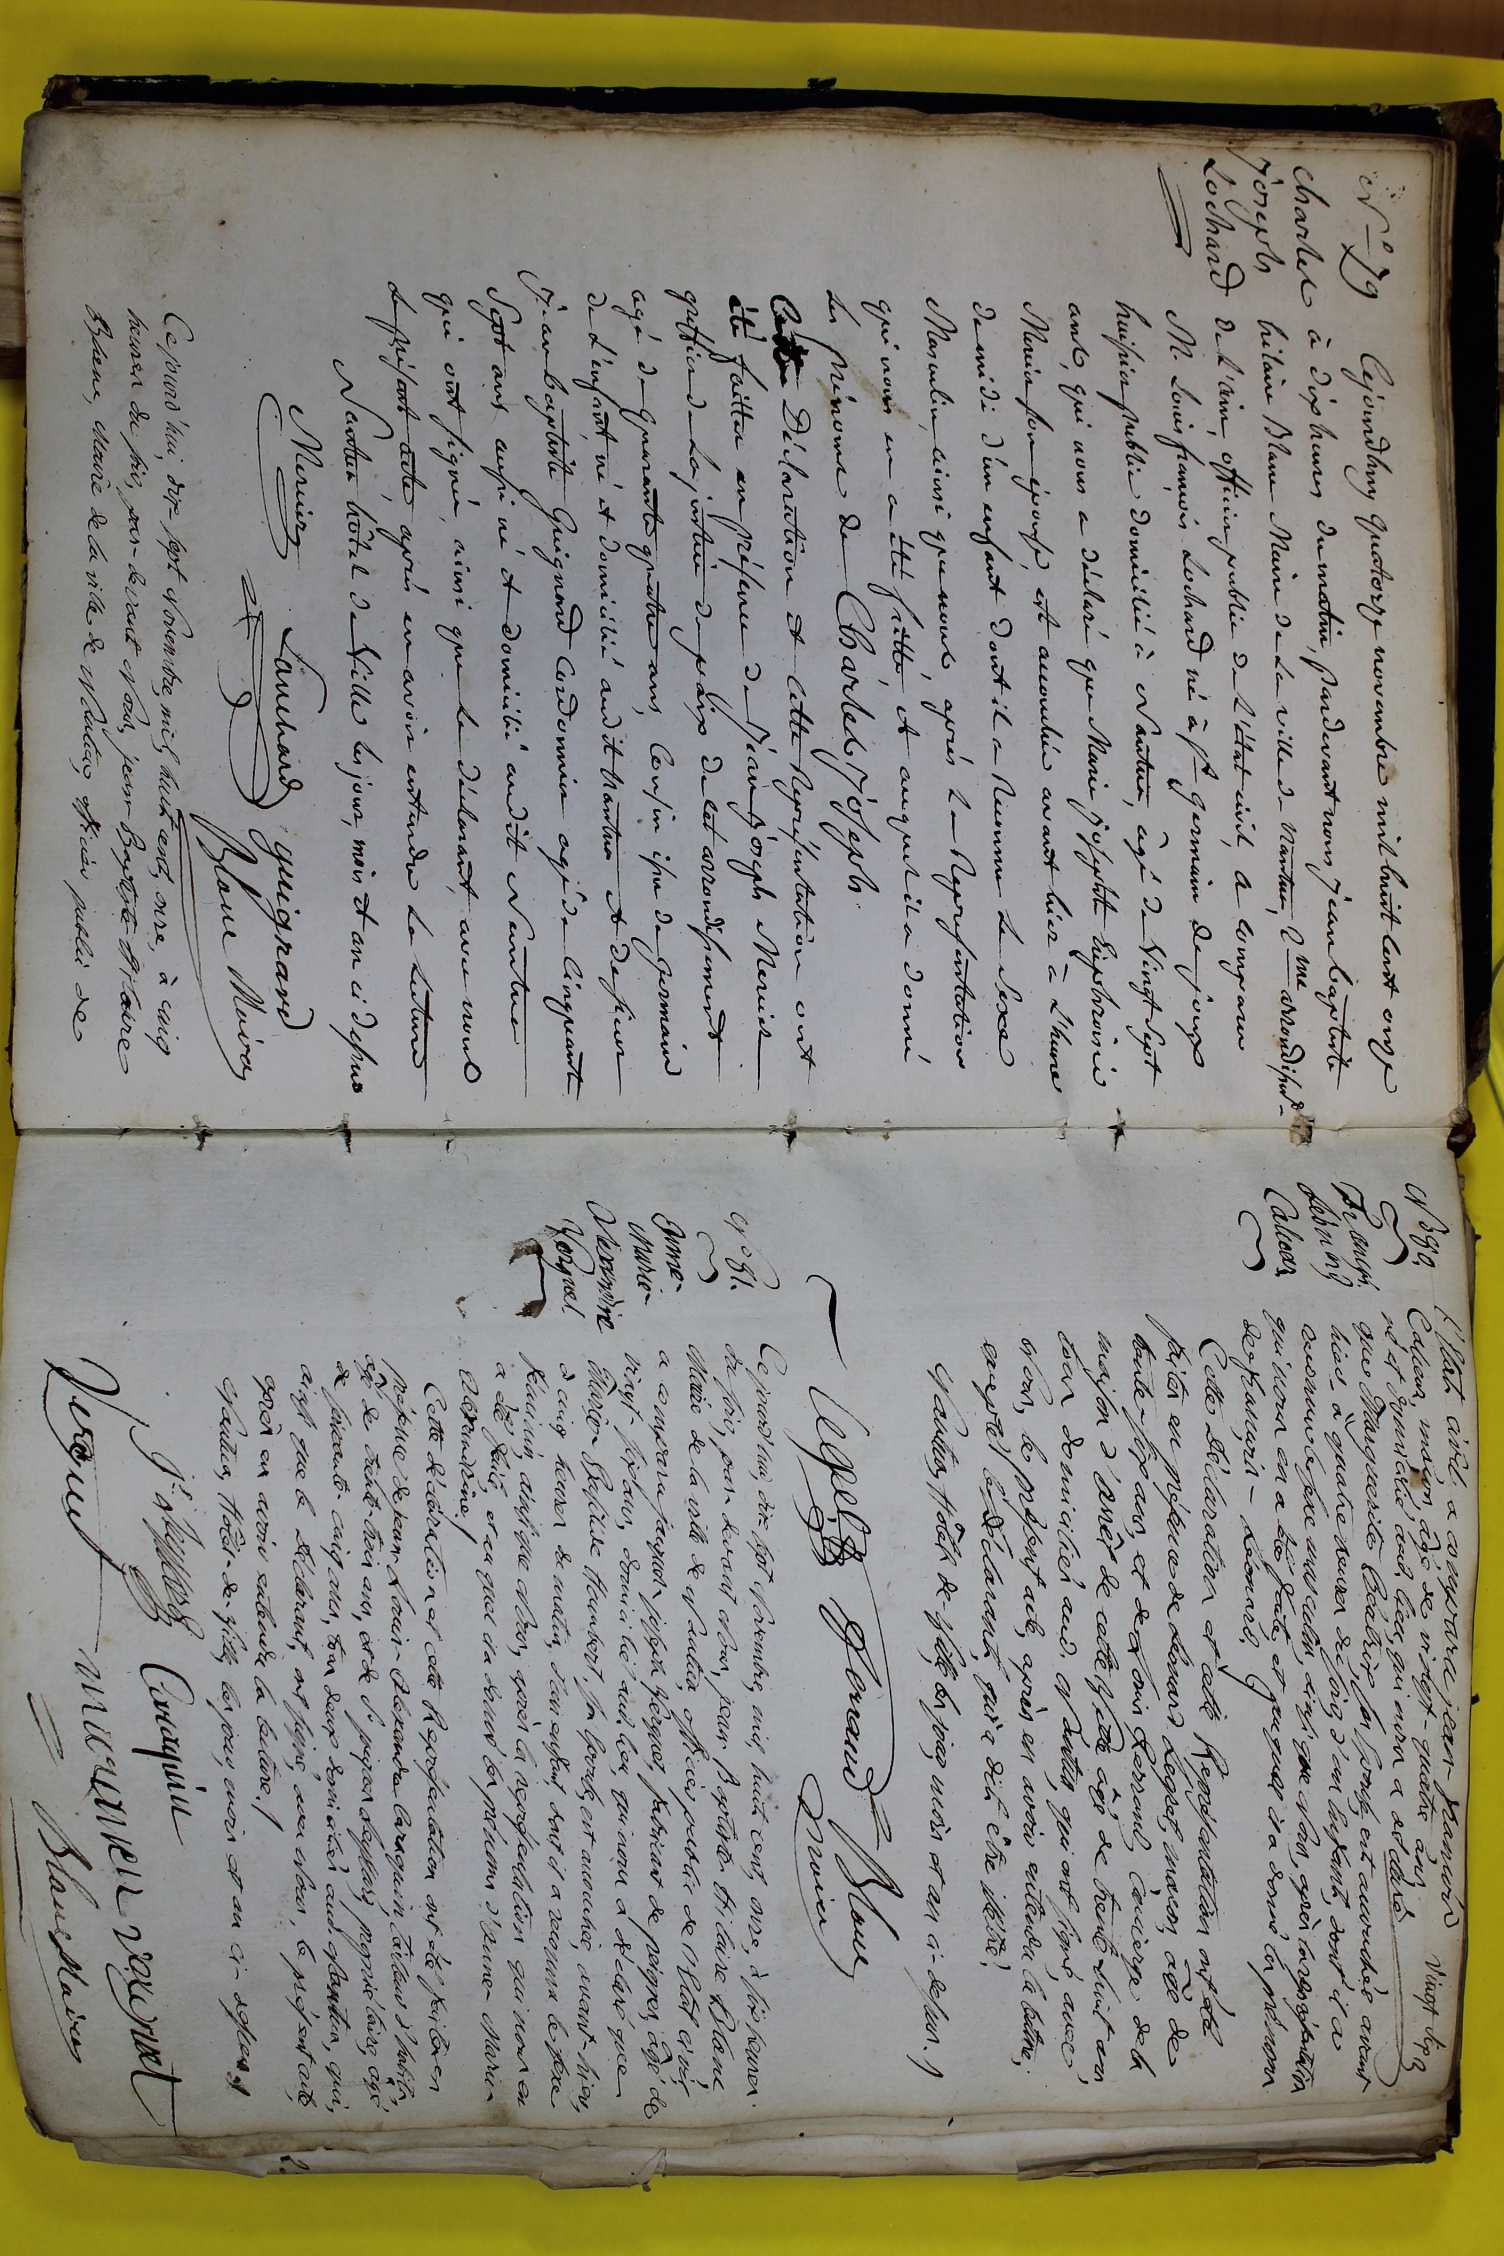 N° 79
Charles
Joseph
Lochard
Cejourdhuy quatorze novembre mil huit cent onze
à dix heures du matin, pardevant nous, jean baptiste
hilaire Blanc Maire de la ville de Nantua, 2me arrondissmt
de l'ain, officier public de l'état civil, a comparu
M. Louis françois Lochard né à St germain de joux
huissier public domicilié à Nantua, âgé de vingt sept
ans, qui nous a déclaré que Marie josephte Euphrosine
Mercier son épouse, est accouchée avant hier à l'heure
de midi d'un enfant dont il a reconnu le sexe
Masculin, ainsi que nous, après la Représentation
qui nous en a été faitte, et auquel il a donné
les prénoms de Charles, Joseph.
Cette Déclaration et cette Représentation ont
été faittes en présence de Jean joseph Mercier
greffier de la justice de paix de cet arrondissement
agé de quarante quatre ans, Cousin issu de germain
de l'enfant, né et domicilié audit Nantua et de sieur
Jean baptiste Guignard Cordonnier agé de cinquante
Sept ans aussi né et domicilié audit Nantua
qui ont signé, ainsi que le déclarant, avec nous
le présent acte, après en avoir entendu la lecture
Nantua hôtel de Ville les jour, mois et an ci dessus
Mercier Lauchard guignard
Blanc Maire
Cejourd'hui, dix sept Novembre, mil huit cent, onze, à cinq
heures du soir, par-devant Nous, jean-Baptiste hilaire
Blanc, Maire de la ville de Nantua, officier public de
Vingt Sept
N° 80.
françois
Léonard
Caliver
l'état civil a comparu jean-françois
maçon, âgé de vingt-quatre ans,
né et domicilié aud. lieu, qui nous a déclaré
que Marguerite Béatrix, son épouse, est accouchée avant
hier à quatre heures du soir, d'un enfant, dont il a
reconnu le sexe masculin, ainsi que Nous, après la représentation
qui nous en a été faite, et auquel il a donné les prénoms
de françois-Léonard.
Cette déclaration et cette Représentation ont été
faites en présence de Léonard Legret, maçon, âgé de
trente-six ans, et de Louis ferrand, Concierge de la
maison d'arrêt de cette Ville, âgé de trente huit ans
tous domiciliés aud. Nantua, qui ont signé, avec
Nous, le présent acte, après en avoir entendu la lecture,
excepté le déclarant, qui a dit être illitéré.
Nantua, hôtel de Ville, les jour, mois et an ci-dessus./
Legret ferrand Blanc
Maire
N° 81.
Anne-
Marie-
Alexandrine
Verguet
Cejourd'hui, dix sept Novembre, mil huit cent, onze, à six heures
du soir, par-devant Nous, jean-Baptiste hilaire Blanc
Maire de la ville de Nantua, officier public de l'état civil,
a comparu jacques joseph Verguet, fabricant de peignes, âgé de
vingt six ans, domicilié aud. lieu, qui nous a déclaré que
Marie-Josephte Humbert, son épouse, est accouchée, avant-hier,
à cinq heures du matin, d'un enfant, dont il a reconnu le sexe
féminin, ainsi que Nous, après la représentation qui nous en
a été faite, et auquel il a donné les prénoms d'Anne-Marie-
Alexandrine./
Cette déclaration et cette Représentation ont été faites en
présence de jean-Louis-Alexandre Carraquin, tailleur d'habits,
âgé de trente-trois ans, et de propriétaire, âgé
de soixante-cinq ans, tous deux domiciliés aud. Nantua, qui,
ainsi que le déclarant, ont signé, avec Nous, le présent acte,
après en avoir entendu la lecture./
Nantua, hôtel-de-Ville, les jour, mois et an ci-dessus./
Carraquin
Verguet Blanc Maire